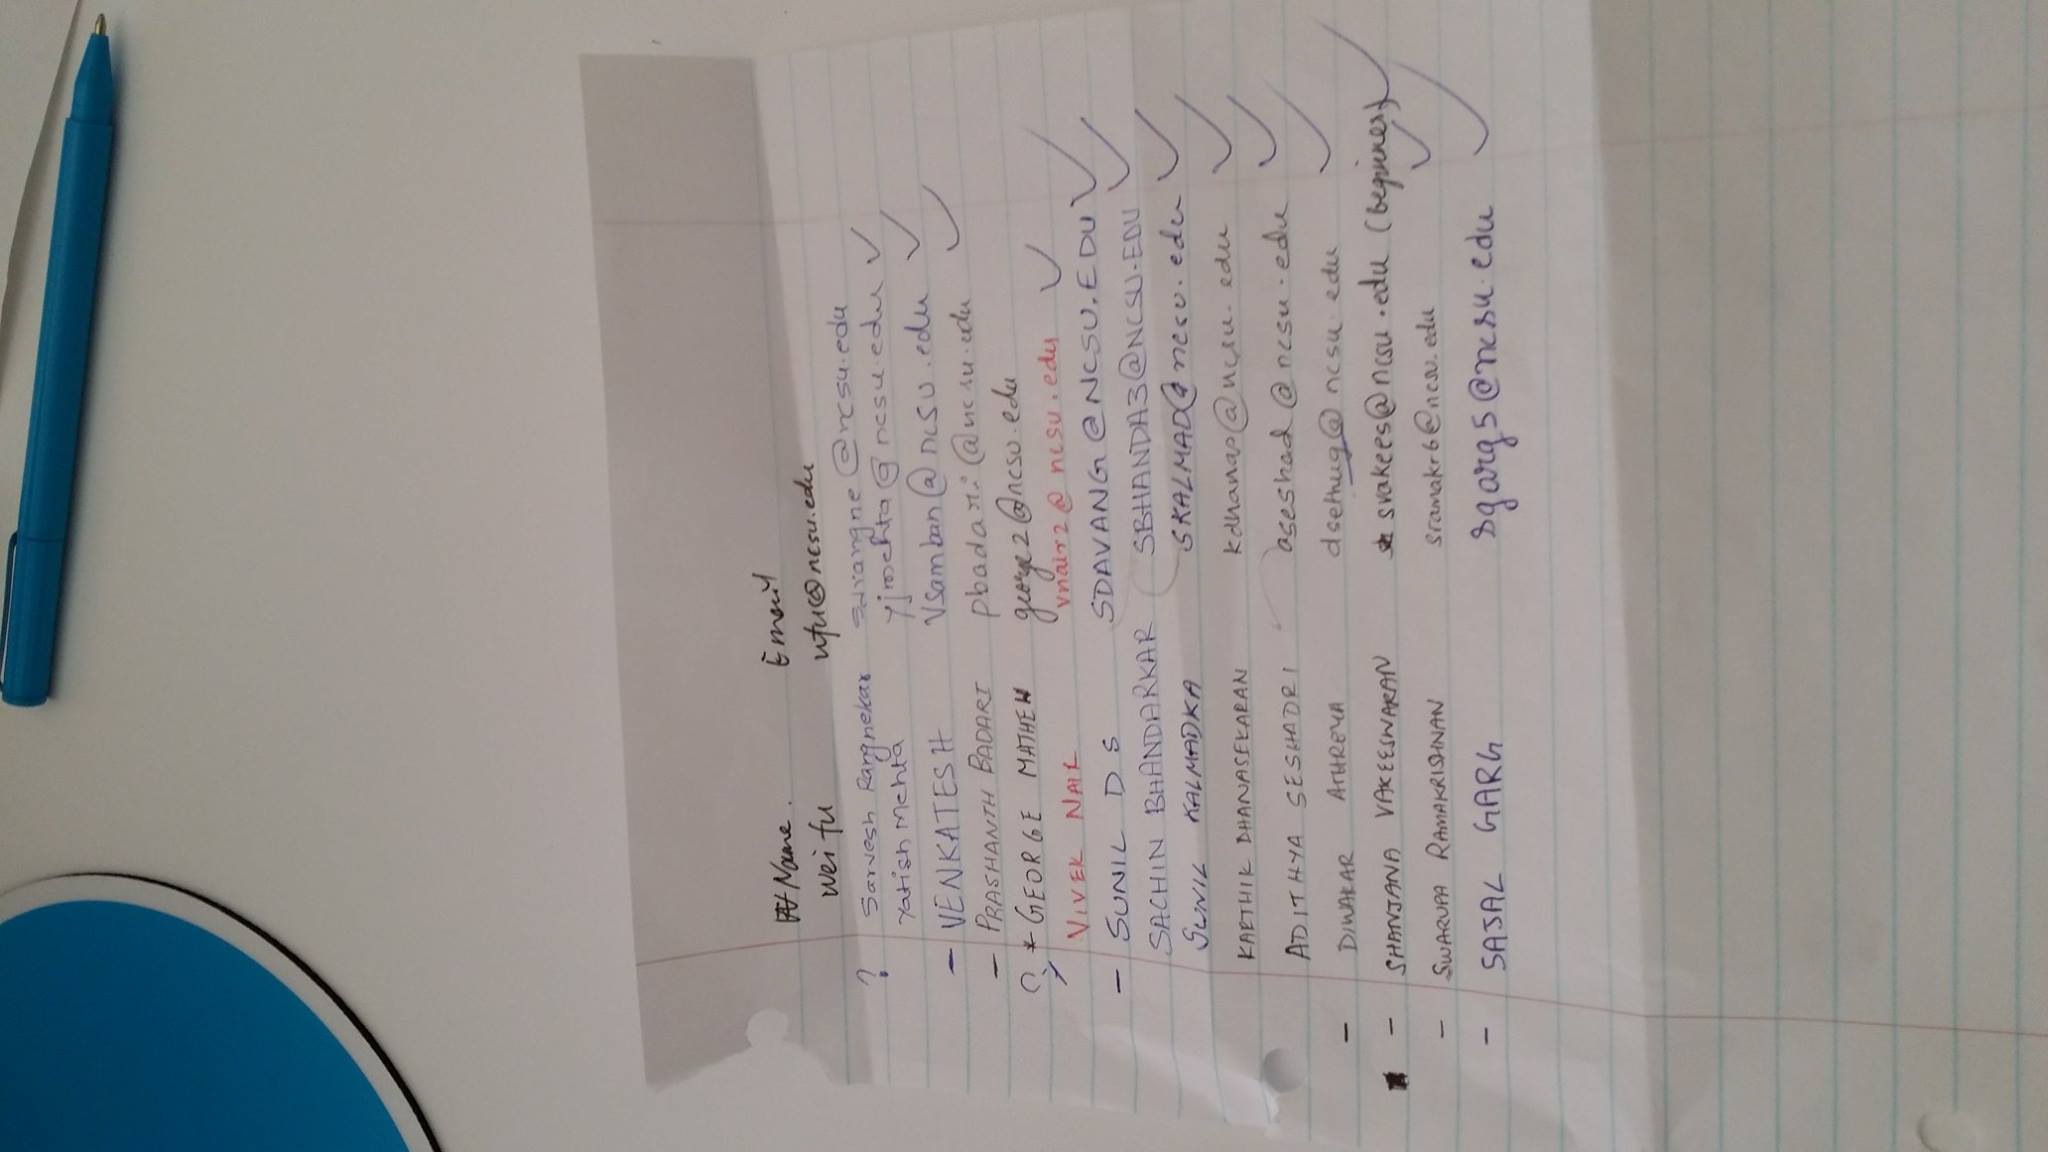 Name. Email
Wei fu wfu@ncsu.edu
? Sarvesh Rangnekar srangne@ncsu.edu
Yatish Mehta yjmehta@ncsu.edu
- VENKATESH Vsamban@ncsu.edu
- PRASHANTH BADARI pbadari@ncsu.edu
? * GEORGE MATHEW george2@ncsu.edu
VIVEK NAIR vnair2@ncsu.edu
- SUNIL D S SDAVANG@NCSU.EDU
SACHIN BHANDARKAR SBHANDA3@NCSU.EDU
SUNIL KALMADKA SKALMAD@ncsu.edu
KARTHIK DHANASEKARAN kdhanas@ncsu.edu
ADITHYA SESHADRI aseshad@ncsu.edu
- DIWAKAR ATHREYA dsethug@ncsu.edu
- SHANJANA VAKEESWARAN * svakees@ncsu.edu (beginner)
- SWARUPA RAMAKRISHNAN sramakr6@ncsu.edu
- SAJAL GARG sgarg5@ncsu.edu